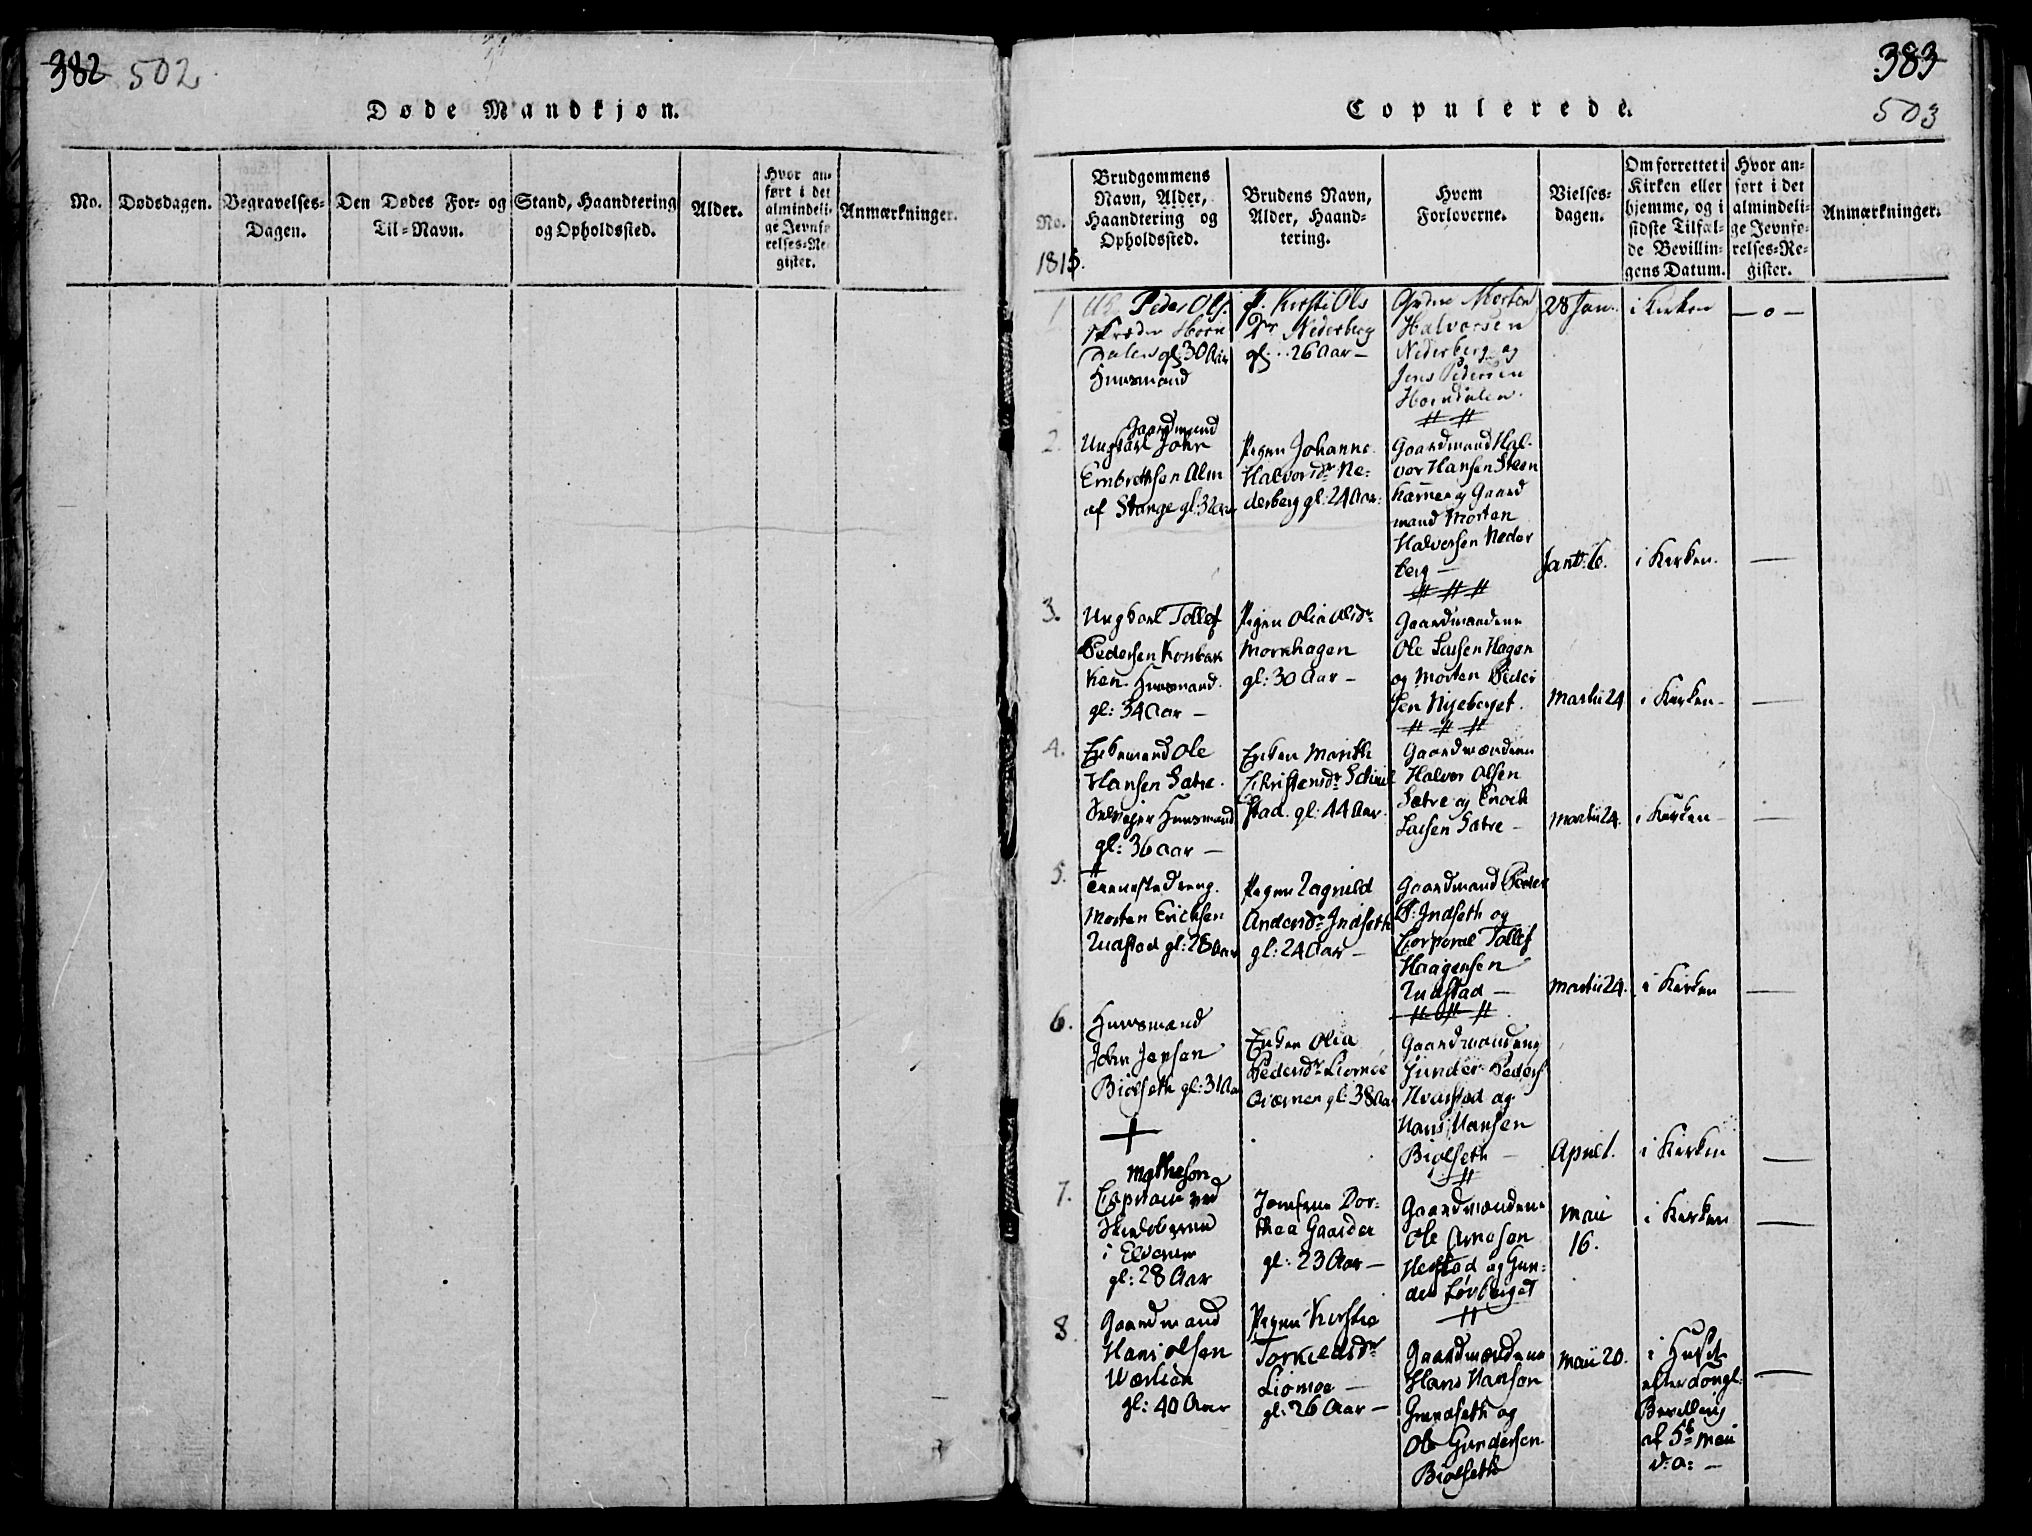 382 502
Døde Mandkjøn.
No.
Dødsdagen.
Begravelses-
Dagen.
Den Dødes For- og
Til-Navn.
Stand, Haandtering
og Opholdssted.
Alder.
Hvor an-
ført i det
almindeli-
ge Jevnfø-
relses-Re-
gister.
Anmærkninger.
383
503
Copulerede.
No.
1815.
Brudgommens
Navn, Alder,
Haandtering og
Opholdssted.
Brudens Navn,
Alder, Haand-
tering.
Hvem
Forloverne.
Vielses-
dagen.
Om forrettet i
Kirken eller
hjemme, og i
sidste Tilfæl-
de Bevillin-
gens Datum.
Hvor an-
ført i det
almindeli-
ge Jevnfø-
relses-Re-
gister.
Anmærkninger.
1
Peder Ols.
Dalen gl: 30 Aar
Huusmand
P. Kirsti Ols
Dr Nederberg
gl. 26 Aar —
Morten
Halvorsen
Nederberg og
Jens Pedersen
Horndalen.
28 Jan.
i Kirken
— o —
2.
Gaardmand
Ungkarl John
Embrethsen Alm
af Stange gl: 32 Aar
Pigen Johanne
Halvorsdr Ne-
derberg gl: 24 Aar:
Gaardmand Hal-
vor Hansen Steen
og Gaard
mand Morten
Halvorsen Neder
berg —
Janu: 6.
i Kirken.
—
3.
Ungkarl Tollef
Pedersen Konbak
ken. Huusmand
gl: 34 Aar —
Pigen Olia Olsdr
Mornhagen
gl: 30 Aar —
Gaardmændene
Ole Larsen Hagen
og Morten Peder
sen Nyeberget.
Martii 24
i Kirken —
—
4.
Enkemand Ole
Hansen Sætre.
Selvejer Huusmand
gl: 36 Aar —
Enken Marithe
Christensdr
stad. gl: 44 Aar.
Gaardmændene
Halvor Olsen
Sætre og Enoch
Larsen Sætre —
Martii 24.
i Kirken —
—
5.
Morten Erichsen
Rudstad gl: 28 Aar
Pigen Ragnild
Andersdr Indseth
gl: 24 Aar —
Gaardmand Peder
P: Indseth og
Corporal Tollef
Haagensen
Rudstad —
Martii 24.
i Kirken
—
6.
Huusmand
John Jepsen
Biølseth gl: 31 Aar
Enken Olia
Pedersdr Liømoe
gl: 38 Aar
Gaardmændene
Gunder Peders
Hvarstad og
Hans Hansen
Biølseth —
April 1.
i Kirken
—
7.
Matheson
Capitain ved
i Elverum
gl: 28 Aar
Jomfrue Dor-
thea Gaarder
gl: 23 Aar —
Gaardmændene
Ole Arnesen
Herstad og Gun-
der Løvberget
Maii
16.
i Kirken
—
8.
Gaardmand
Hans Olsen
Wærlien
gl: 40 Aar
Pigen Kirstie
Torkildsdr
Liømoe —
gl: 26 Aar —
Gaardmændene
Hans Hansen
Grundseth og
Ole Gundersen
Biølseth
Maii 20.
i Huset
efter Kongl:
Bevilling
af 5te Maii
d: a: —
—